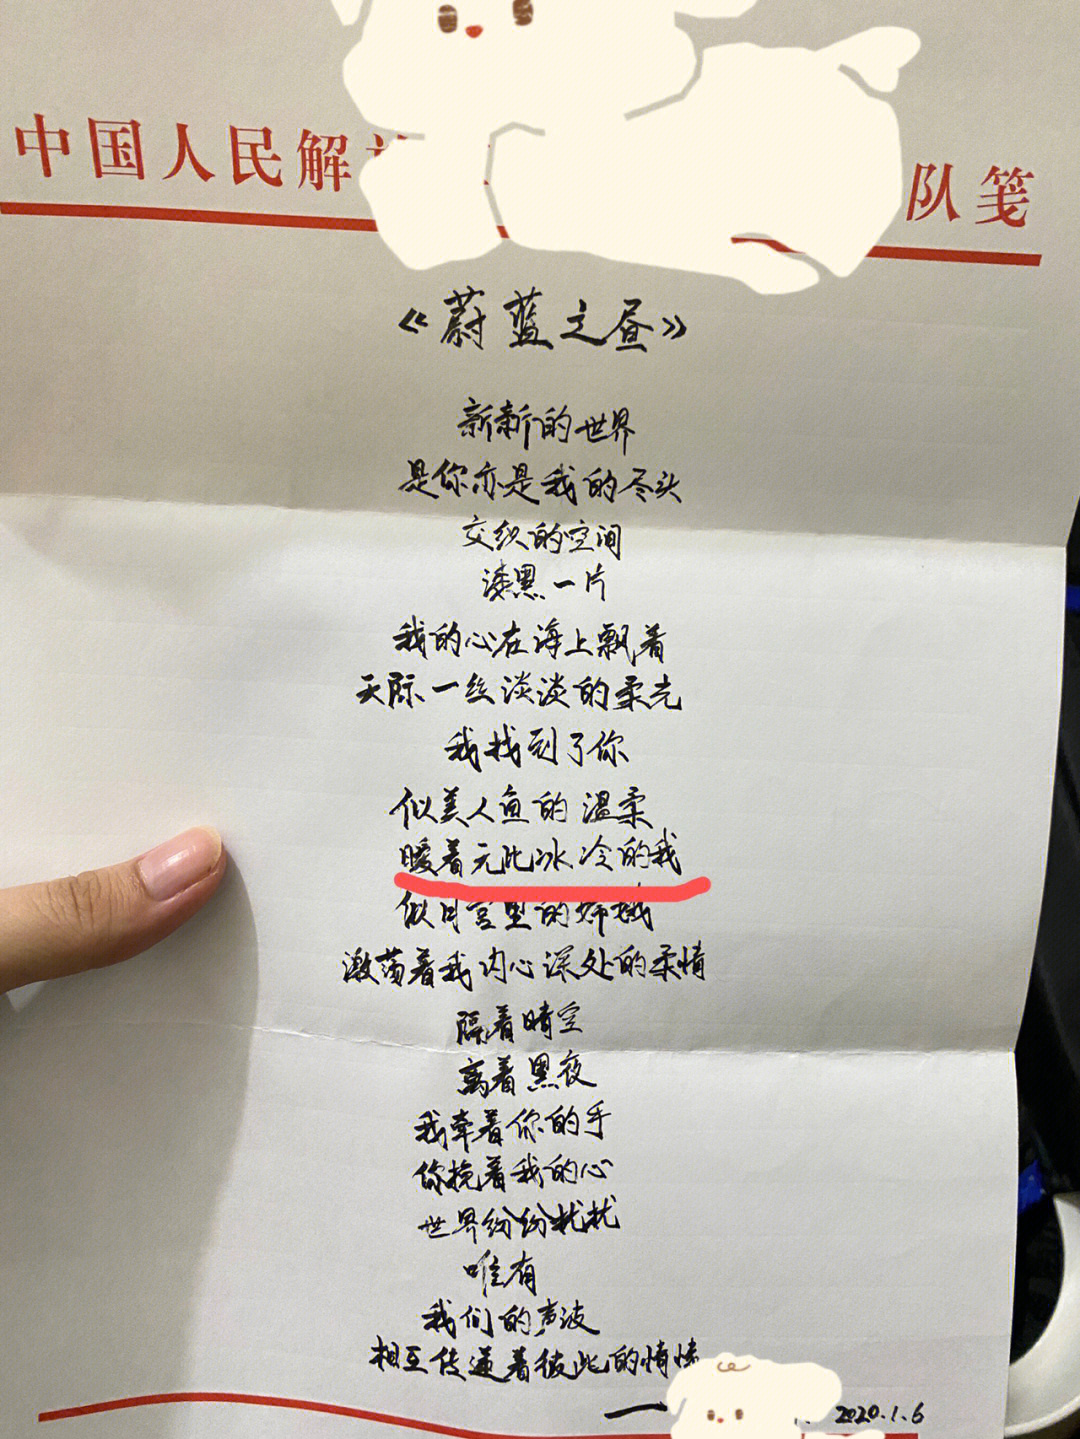 中国人民解
队笺
《蔚蓝之昼》
新新的世界
是你亦是我的尽头
交织的空间
漆黑一片
我的心在海上飘着
天际一丝淡淡的柔光
我找到了你
似美人鱼的温柔
暖着无比冰冷的我
似月宫里的嫦娥
激荡着我内心深处的柔情
隔着晴空
离着黑夜
我牵着你的手
你挽着我的心
世界纷纷扰扰
唯有
我们的声波
相互传递着彼此的情愫
一 2020.1.6